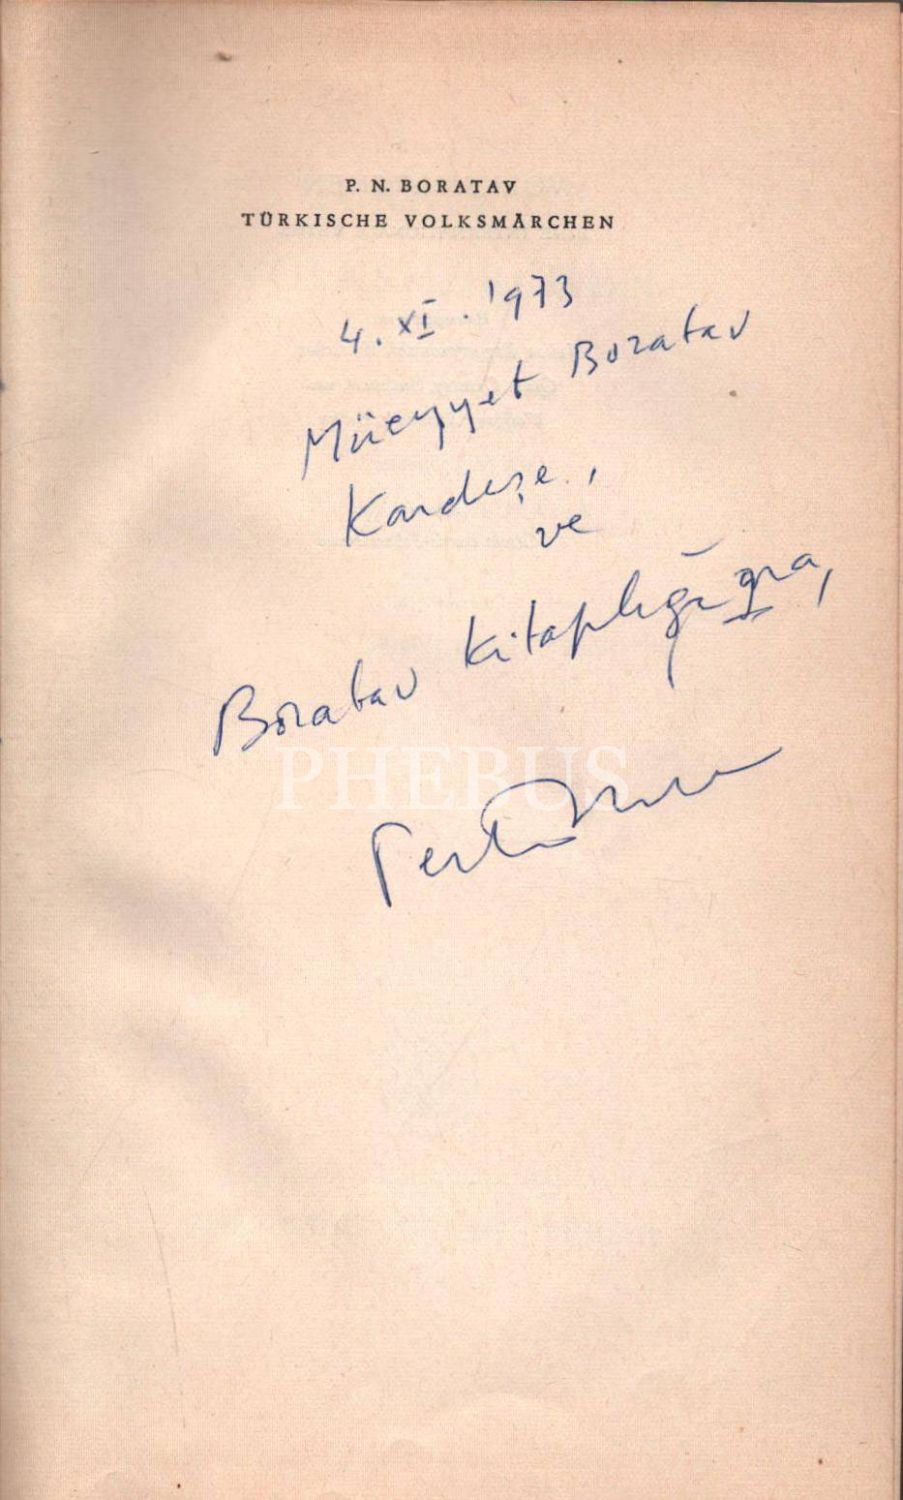 P. N. BORATAV
TÜRKISCHE VOLKSMÄRCHEN
4. XI. 1973
Müeyyet Boratav
Kardeşe,
ve
Boratav Kitaplığına,
PHEBUS
Pertev